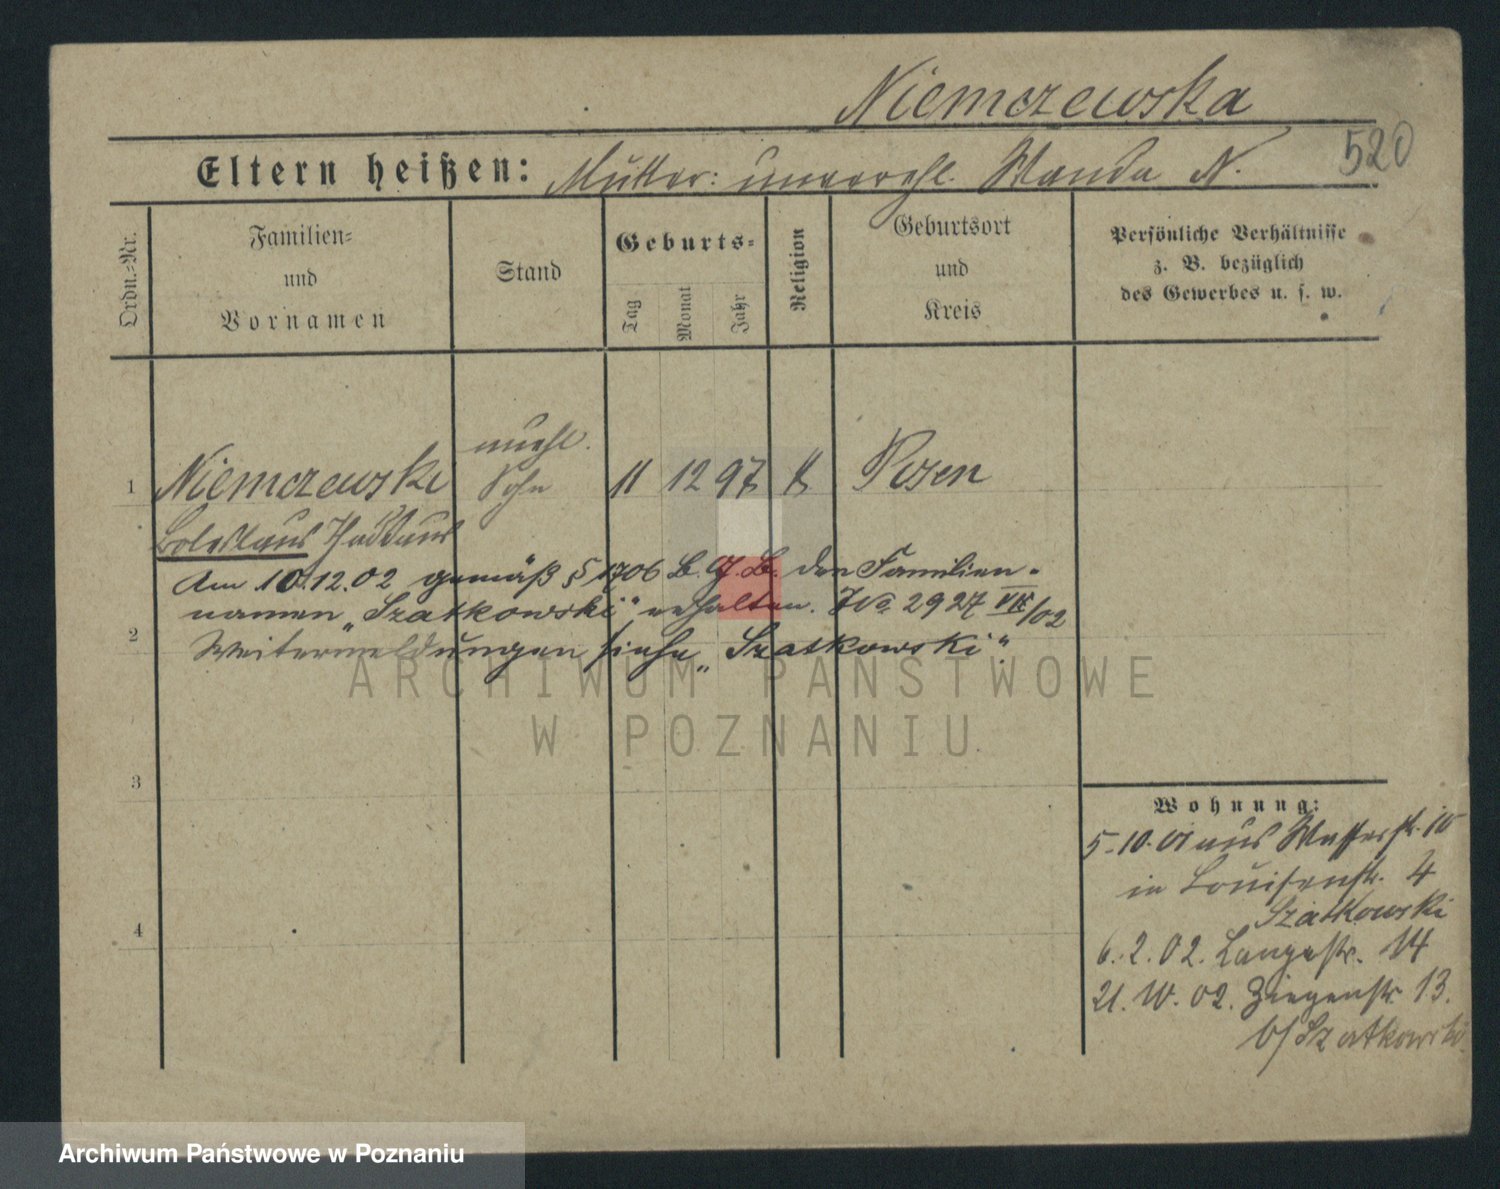 Niemczewska
520
Eltern heißen: Mutter: unverehl. Wanda N.
Ordn.-Nr.
Familien-
und
Vornamen
Stand
Geburts-
Tag
Monat
Jahr
Religion
Geburtsort
und
Kreis
Persönliche Verhältnisse
z. B. bezüglich
des Gewerbes u. s. w.
1
Niemczewski
unehl.
Sohn
11 12 97 k Posen
Boleslaus Thaddaus
Am 10.12.02 gemäß § 1706 B.G.B. den Familien-
namen „Szatkowski“ erhalten. 2927 /02
2
Weitermeldungen siehe „Szatkowski“
3
4
Wohnung:
5.10.01 aus Wasserstr. 10
in Louisenstr. 4
Szatkowski
6.2.02. Langestr. 14
21.10.02. Ziegenstr. 13.
b/Szatkowski
ARCHIWUM PAŃSTWOWE
W POZNANIU
Archiwum Państwowe w Poznaniu